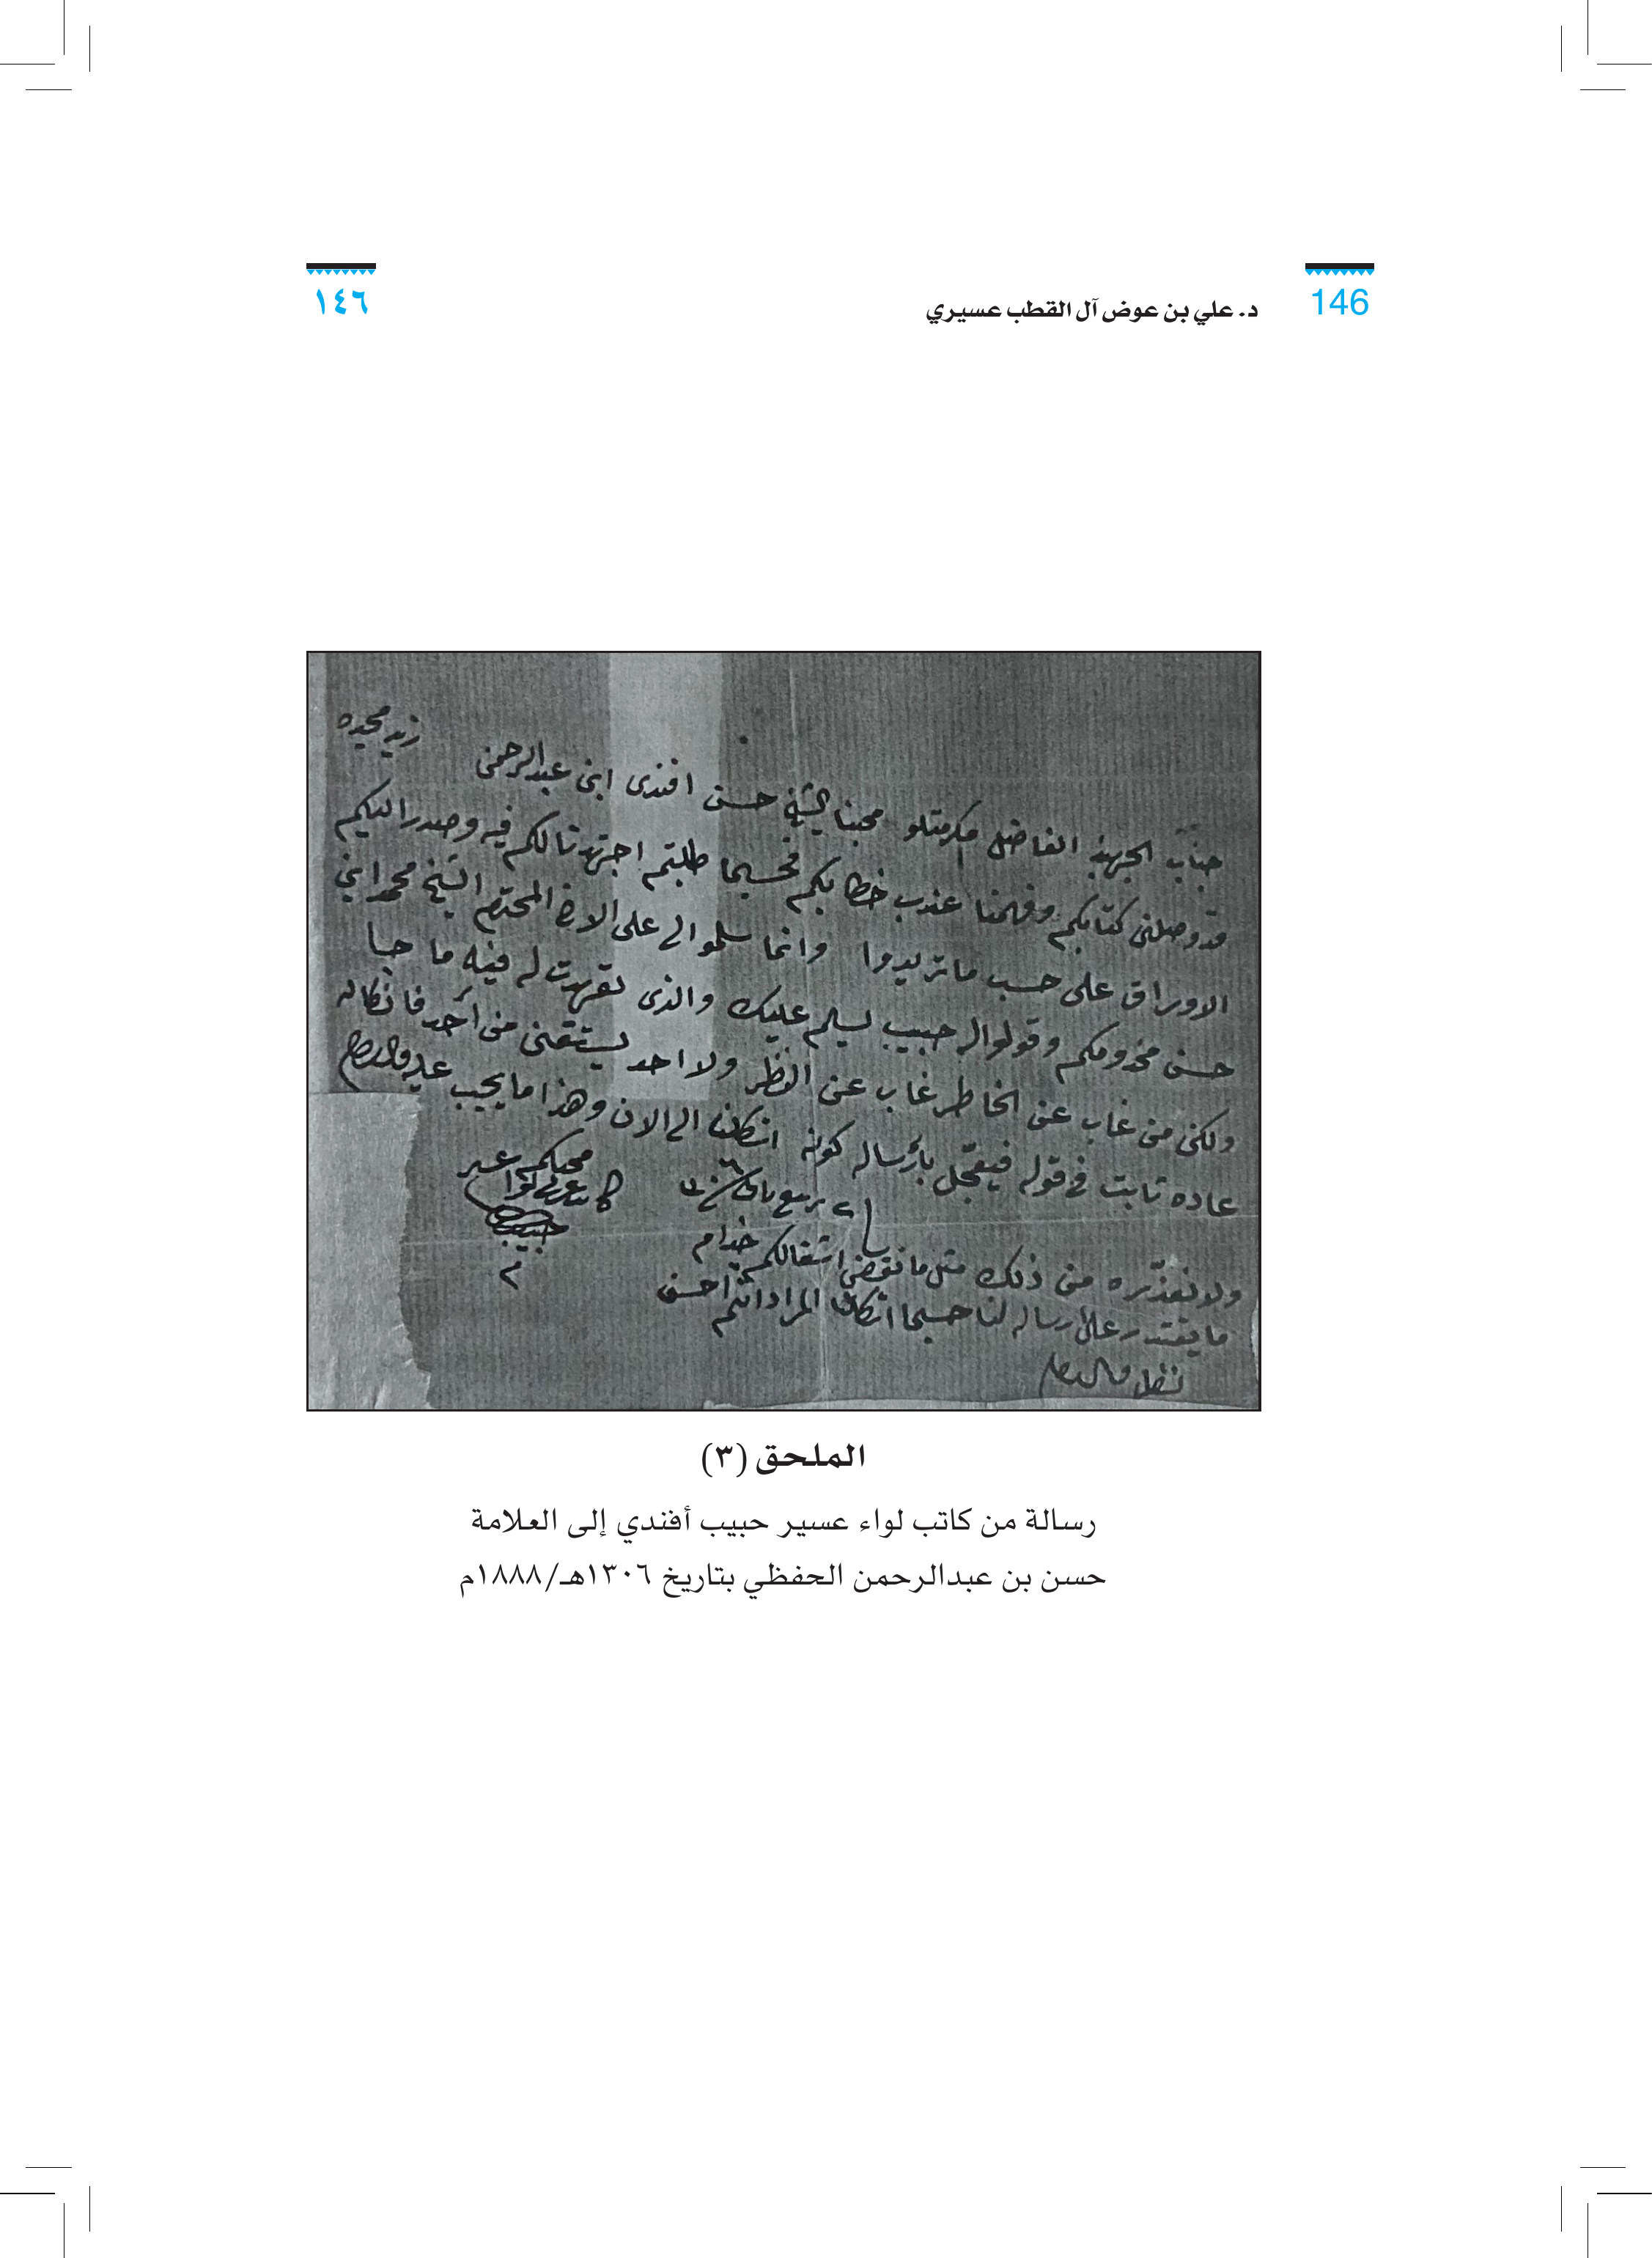 146
د. علي بن عوض آل القطب عسيري
١٤٦
زيد مجده
جناب الجهبذ الفاضل مكرمتلو محبنا الشيخ حسن افندى ابن عبدالرحمن
قد وصلنى كتابكم وفهمنا عذب خطابكم فحسبما طلبتم اجتهدنا لكم فيه وصدر اليكم
الاوراق على حسب ما تريدوا وانما سلموا لي على الاخ المحترم الشيخ محمد ابن
حسن مخدومكم وقولوا له حبيب يسلم عليك والذى تعهدت له فيه ما جا
ولكن من غاب عن الخاطر غاب عن النظر ولا احد من احد فانكان له
عاده ثابت في قوله فيعجل بارساله كونه انتظرنا الى الان وهذا ما يجب عليه والسلام
ربيع
محبكم
حبيب
ولا من ذلك متى ما اشغالكم خدام
ما يقتدر على ارساله لنا حسبما المراد انتم احسن
والسلام
الملحق (٣)
رسالة من كاتب لواء عسير حبيب أفندي إلى العلامة
حسن بن عبدالرحمن الحفظي بتاريخ ١٣٠٦هـ/١٨٨٨م